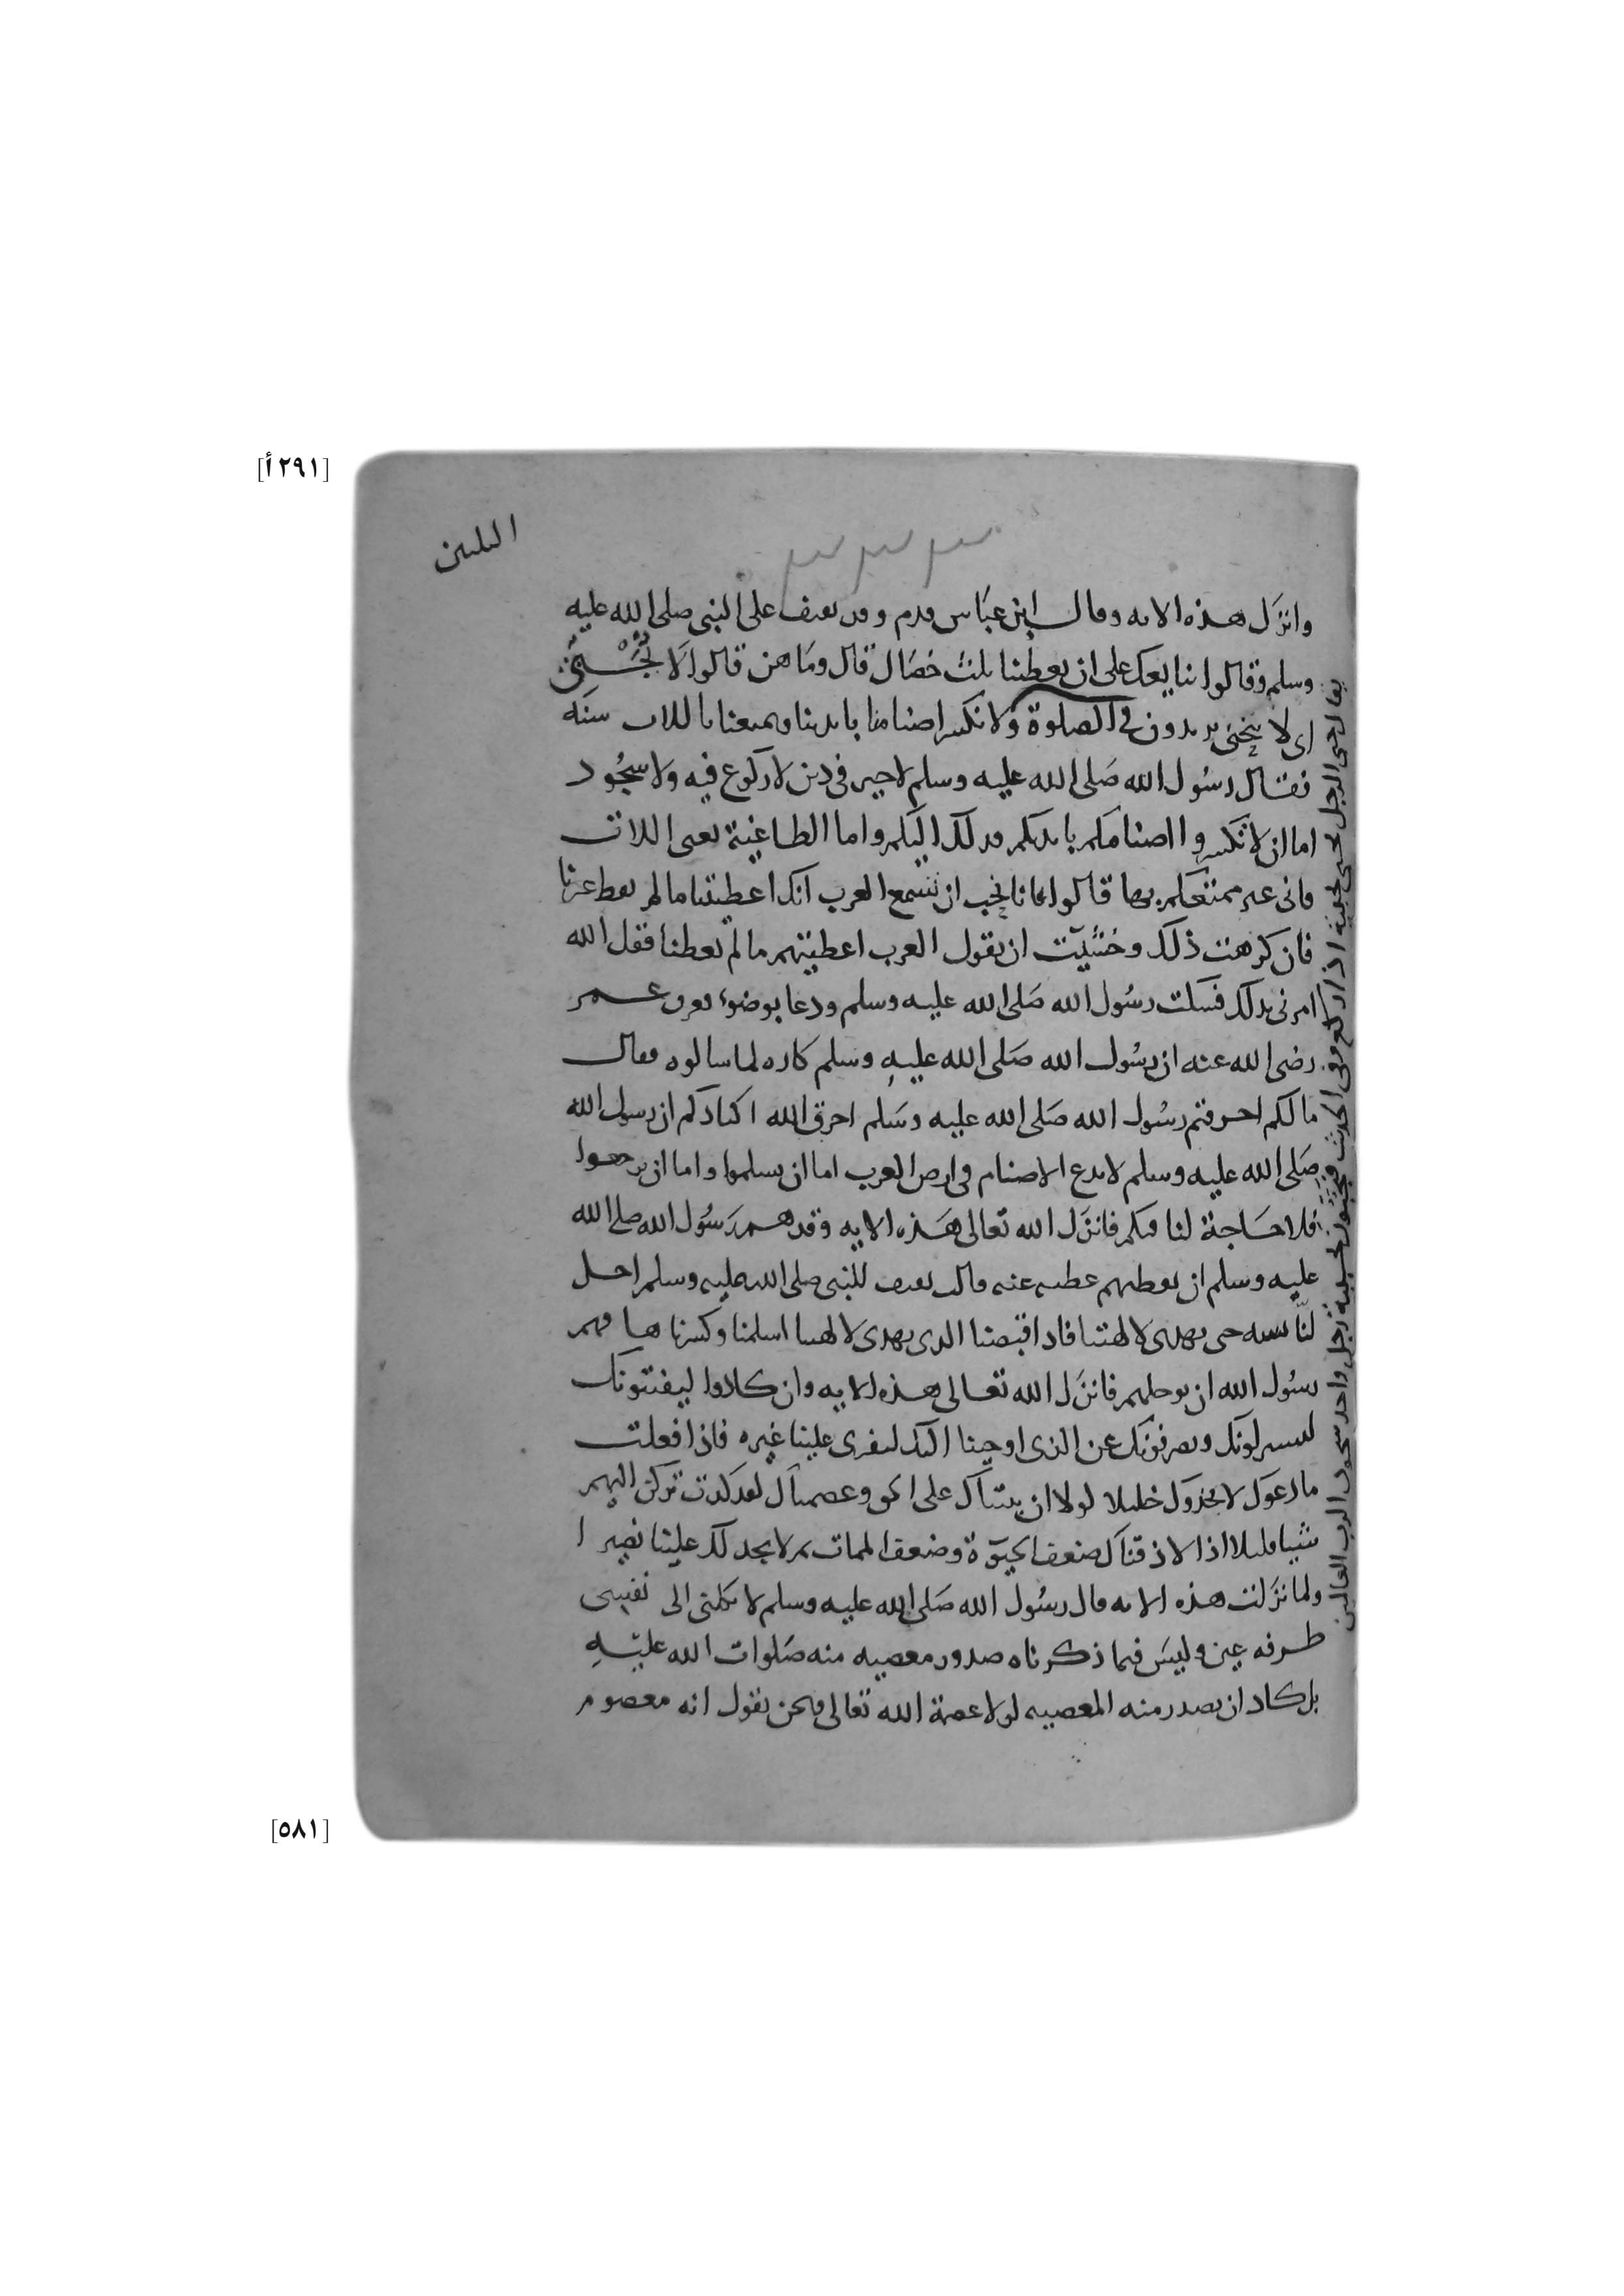 [٢٩١أ]
وانزل هذه الايه وقال ابن عباس قدم وفد ثقيف على النبي صلى الله عليه
وسلم وقالوا نبايعك على ان تعطينا ثلث خصال قال وما هن قالوا الا نجبي
اى لا ننحنى يريدون فى الصلوة ولا نكسر اصنامنا بايدينا وتمتعنا باللات سنة
فقال رسول الله صلى الله عليه وسلم لاخير فى دين لا ركوع فيه ولا سجود
اما ان لا تكسروا اصنامكم بايديكم فذلك اليكم واما الطاغية يعنى اللات
فانى غير ممتعكم بها قالوا فانا نحب ان تسمع العرب انك اعطيتنا ما لم تعط غيرنا
فان كرهت ذلك وخشيت ان يقول العرب اعطيتهم ما لم تعطنا فقل الله
امرنى بذلك فسكت رسول الله صلى الله عليه وسلم ودعا بوضوء فعرف عمر
رضى الله عنه ان رسول الله صلى الله عليه وسلم كاره لما سالوه فقال
مالكم احرقتم رسول الله صلى الله عليه وسلم احرق الله اكبادكم ان رسول الله
صلى الله عليه وسلم لا يدع الاصنام فى ارض العرب اما ان يسلموا واما ان يرجعوا
فلا حاجة لنا فيكم فانزل الله تعالى هذه الايه وقد هم رسول الله صلى الله
عليه وسلم ان يعطيهم عطيه عنه قالت ثقيف للنبى صلى الله عليه وسلم اجل
لنا سنه حتى يهدى لالهتنا فاذا قبضنا الذى يهدى لالهتنا اسلمنا وكسرناها فهم
رسول الله ان يوجلهم فانزل الله تعالى هذه الايه وان كادوا ليفتنونك
ليستزلونك ويصرفونك عن الذى اوحينا اليك لتفترى علينا غيره فاذا فعلت
ما ادعوك لاتخذوك خليلا لولا ان ثبتناك على الحق وعصمناك لقد كدت تركن اليهم
شيا قليلا اذا لاذقناك ضعف الحيوة وضعف الممات ثم لا تجد لك علينا نصيرا
ولما نزلت هذه الايه قال رسول الله صلى الله عليه وسلم لا تكلنى الى نفسى
طرفه عين وليس فيما ذكرناه صدور معصيه منه صلوات الله عليه
بل كاد ان يصدر منه المعصيه لولا عصمة الله تعالى ونحن نقول انه معصوم
يقال جبى الرجل تجبية اذا ركع وفى الحديث فيجبون تجبية رجل واحد سجود لرب العالمين
[٥٨١]